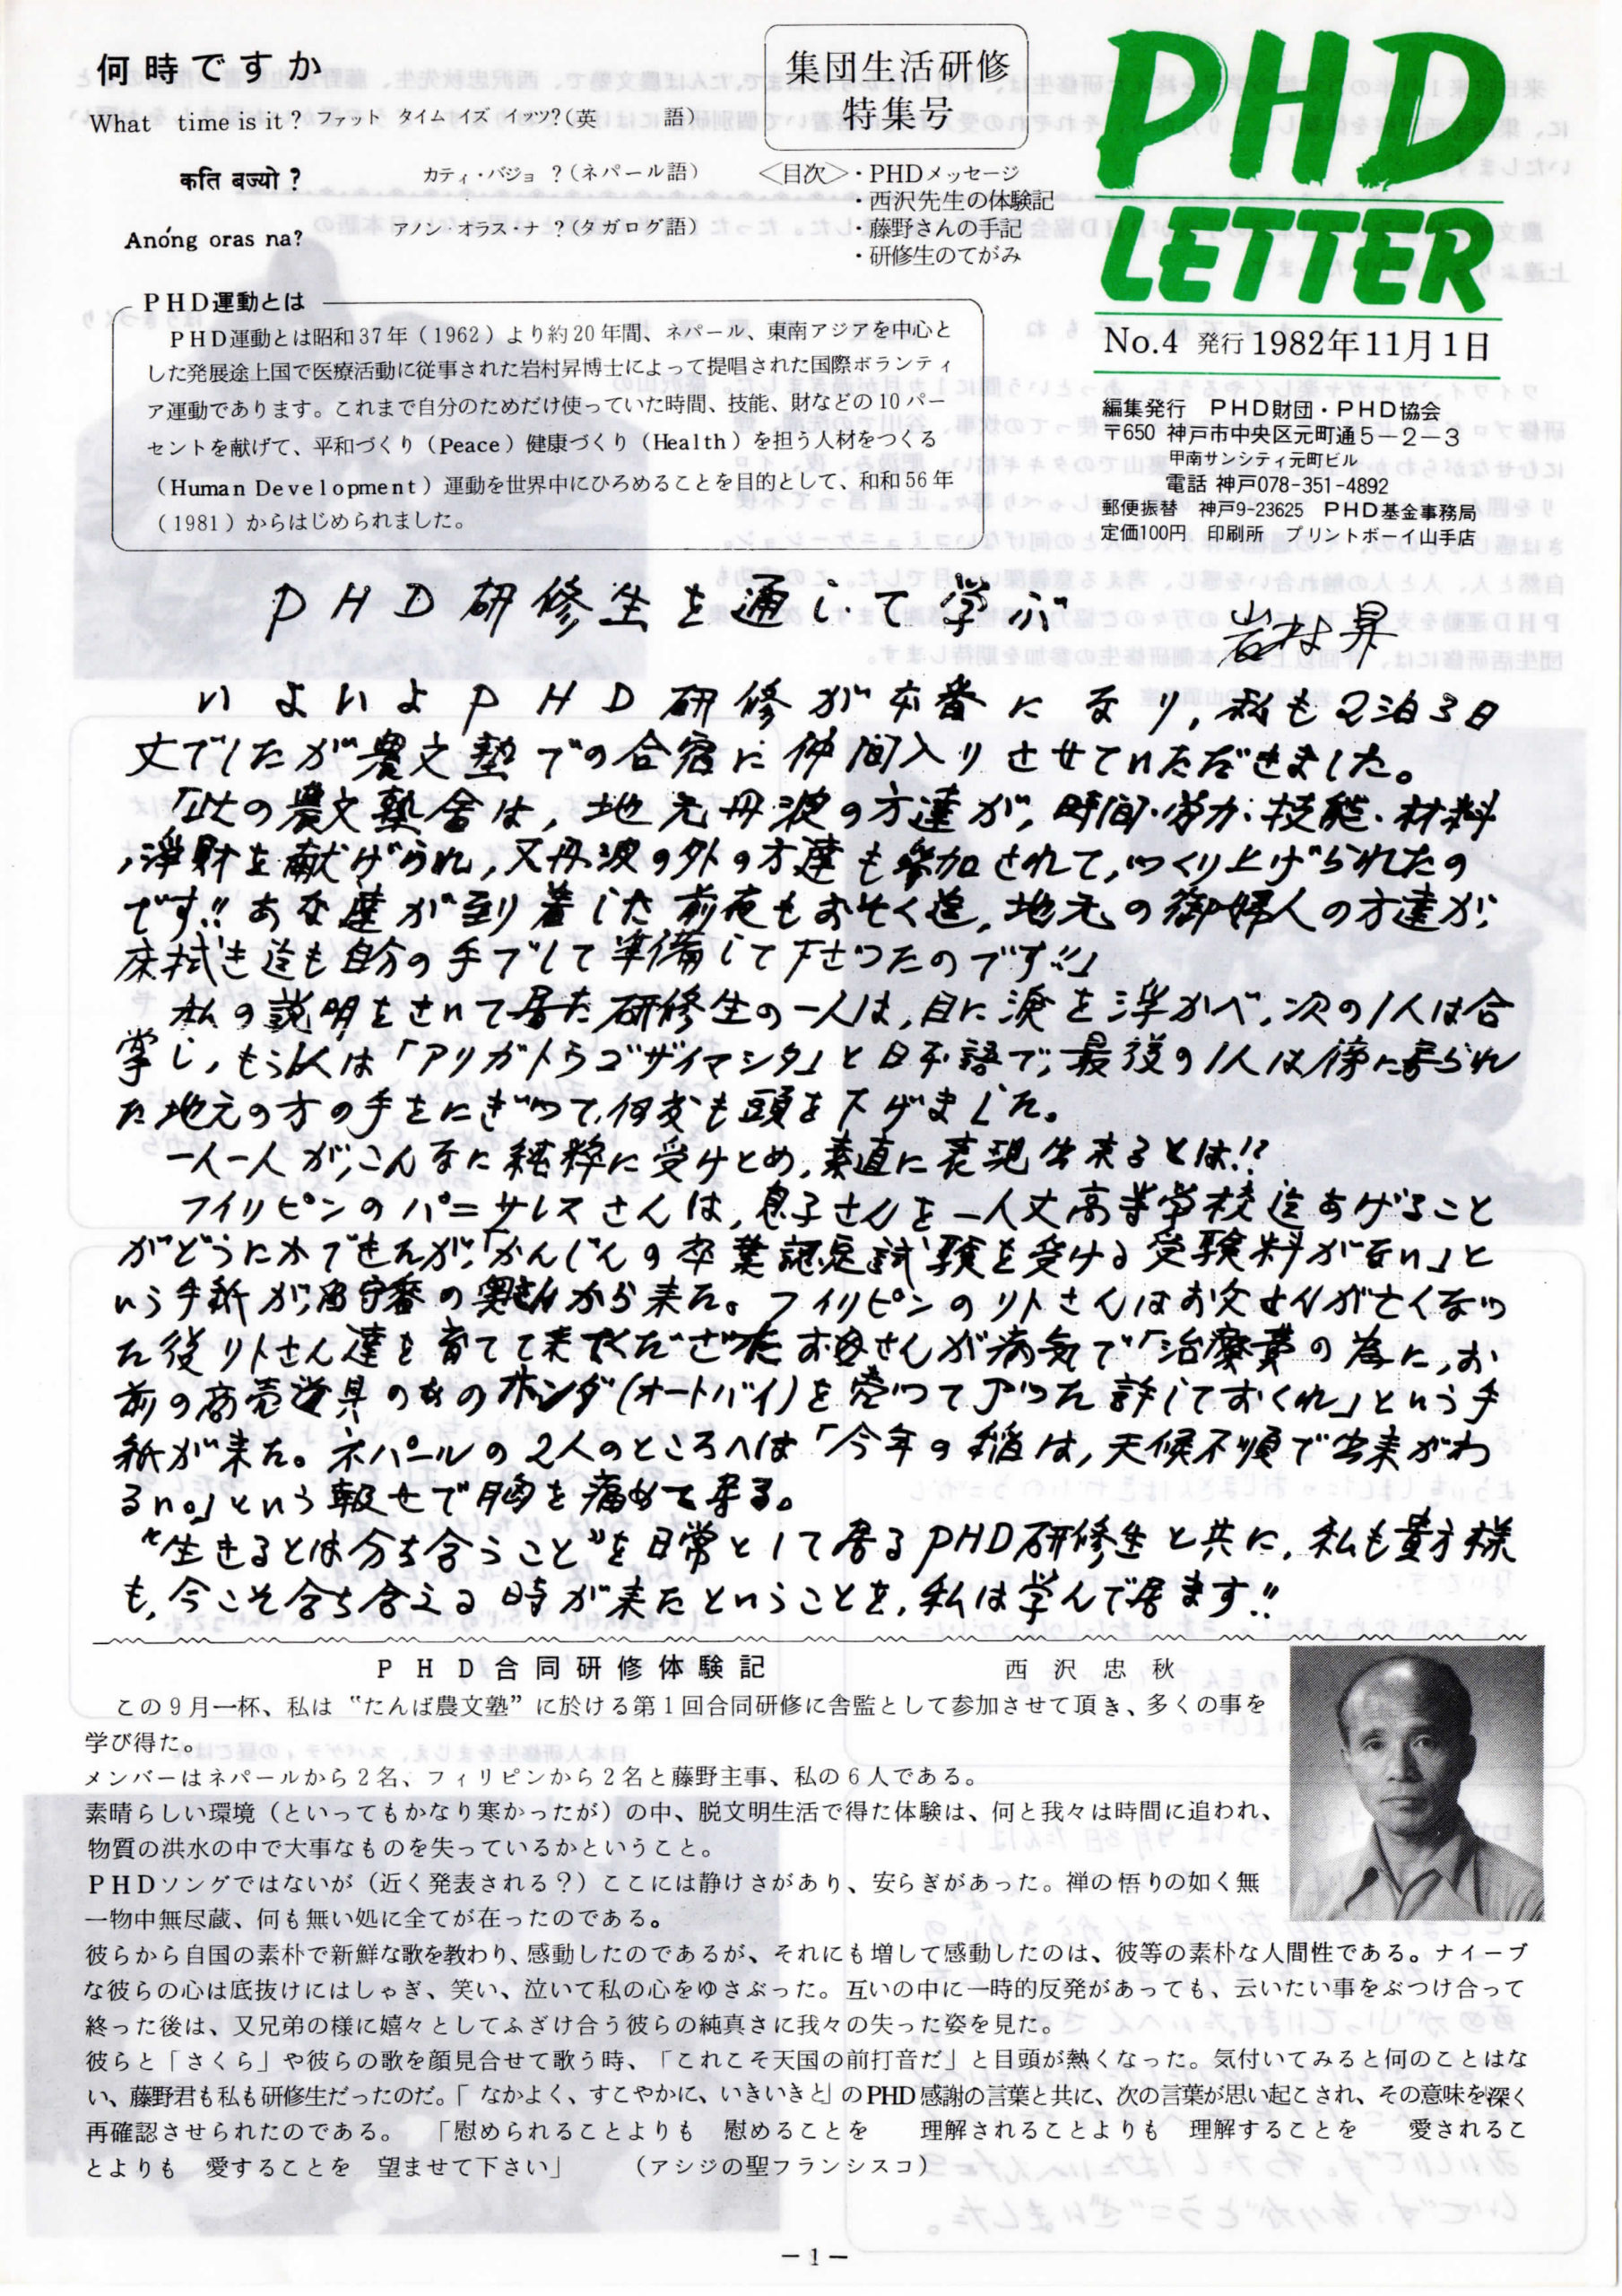 何時ですか
What time is it? ファット タイム イズ イッツ?(英 語)
कति बज्यो ? カティ・バジョ ?(ネパール語)
Anóng oras na? アノン・オラス・ナ ?(タガログ語)
集団生活研修
特集号
<目次>・PHDメッセージ
・西沢先生の体験記
・藤野さんの手記
・研修生のてがみ
PHD
LETTER
No.4 発行 1982年11月1日
編集発行 PHD財団・PHD協会
〒650 神戸市中央区元町通5-2-3
甲南サンシティ元町ビル
電話 神戸078-351-4892
郵便振替 神戸9-23625 PHD基金事務局
定価100円 印刷所 プリントボーイ山手店
PHD運動とは
PHD運動とは昭和37年(1962)より約20年間、ネパール、東南アジアを中心と
した発展途上国で医療活動に従事された岩村昇博士によって提唱された国際ボランティ
ア運動であります。これまで自分のためだけ使っていた時間、技能、財などの10パー
セントを献げて、平和づくり(Peace)健康づくり(Health)を担う人材をつくる
(Human Development)運動を世界中にひろめることを目的として、和和56年
(1981)からはじめられました。
PHD研修生を通じて学ぶ 岩村昇
いよいよPHD研修が本番になり,私も2泊3日
丈でしたが農文塾での合宿に仲間入りさせていただきました。
「此の農文塾舎は,地元丹波の方達が,時間・労力・技能・材料
,浄財を献げられ,又丹波の外の方達も参加されて,つくり上げられたの
です!!あな達が到着した前夜もおそく迄,地元の御婦人の方達が,
床拭き迄も自分の手でして準備して下さつたのです!!」
私の説明をきいて居た研修生の一人は,目に涙を浮かべ,次の1人は合
掌し,もう1人は「アリガトウゴザイマシタ」と日本語で,最後の1人は傍に寄られ
た地元の方の手をにぎつて,何度も頭を下げました。
一人一人が,こんなに純粋に受けとめ,素直に表現出来るとは!?
フイリピンのパニサレスさんは,息子さんを一人丈高等学校迄あげること
がどうにかできたが,「かんじんの卒業認定試験を受ける受験料がない」と
いう手紙が,留守番の奥さんから来た。フイリピンのリトさんはお父さんが亡くなつ
た後リトさん達を育てて来てくださつたお母さんが病気で「治療費の為に,お
前の商売道具のあのホンダ(オートバイ)を売つて了つた許しておくれ」という手
紙が来た。ネパールの2人のところへは「今年の稲は,天候不順で出来がわ
るい。」という報せで胸を痛めて居る。
“生きるとは分ち合うこと”を日常として居るPHD研修生と共に,私も貴方様
も,今こそ合ち合える時が来たということを,私は学んで居ます!!
PHD合同研修体験記 西沢忠秋
この9月一杯、私は“たんば農文塾”に於ける第1回合同研修に舎監として参加させて頂き、多くの事を
学び得た。
メンバーはネパールから2名、フィリピンから2名と藤野主事、私の6人である。
素晴らしい環境(といってもかなり寒かったが)の中、脱文明生活で得た体験は、何と我々は時間に追われ、
物質の洪水の中で大事なものを失っているかということ。
PHDソングではないが(近く発表される?)ここには静けさがあり、安らぎがあった。禅の悟りの如く無
一物中無尽蔵、何も無い処に全てが在ったのである。
彼らから自国の素朴で新鮮な歌を教わり、感動したのであるが、それにも増して感動したのは、彼等の素朴な人間性である。ナイーブ
な彼らの心は底抜けにはしゃぎ、笑い、泣いて私の心をゆさぶった。互いの中に一時的反発があっても、云いたい事をぶつけ合って
終った後は、又兄弟の様に嬉々としてふざけ合う彼らの純真さに我々の失った姿を見た。
彼らと「さくら」や彼らの歌を顔見合せて歌う時、「これこそ天国の前打音だ」と目頭が熱くなった。気付いてみると何のことはな
い、藤野君も私も研修生だったのだ。「なかよく、すこやかに、いきいきと」のPHD感謝の言葉と共に、次の言葉が思い起こされ、その意味を深く
再確認させられたのである。 「慰められることよりも 慰めることを 理解されることよりも 理解することを 愛されるこ
とよりも 愛することを 望ませて下さい」 (アシジの聖フランシスコ)
-1-